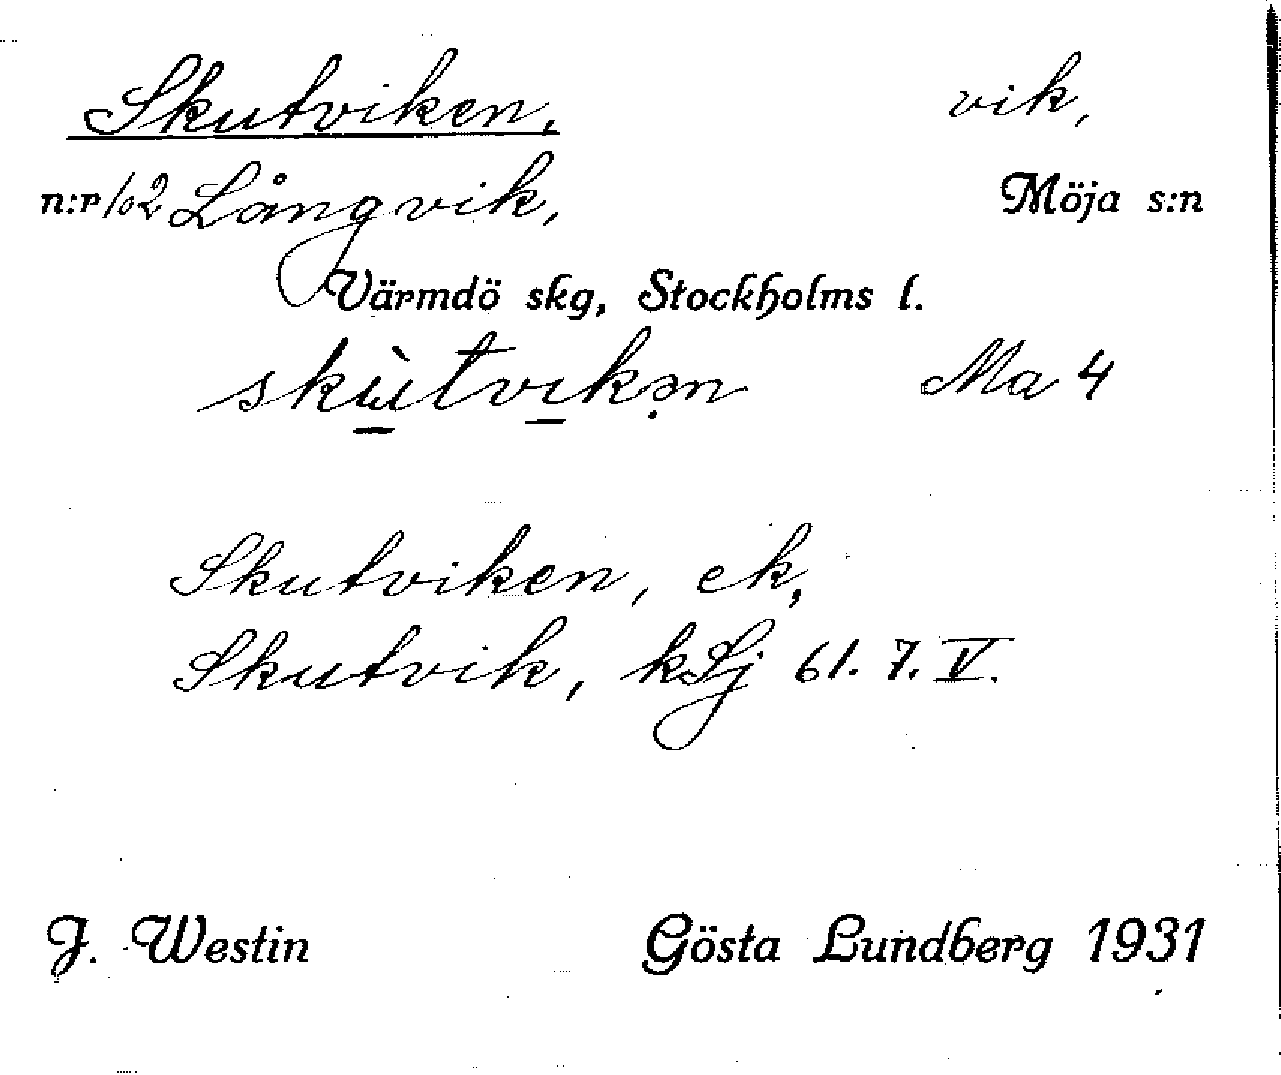 Skutviken, vik,
n:r 102 Långvik, Möja s:n
Värmdö skg, Stockholms l.
skùtvikən Ma 4
Skutviken, ek,
Skutvik, kSj 61. 7. V.
J. Westin Gösta Lundberg 1931